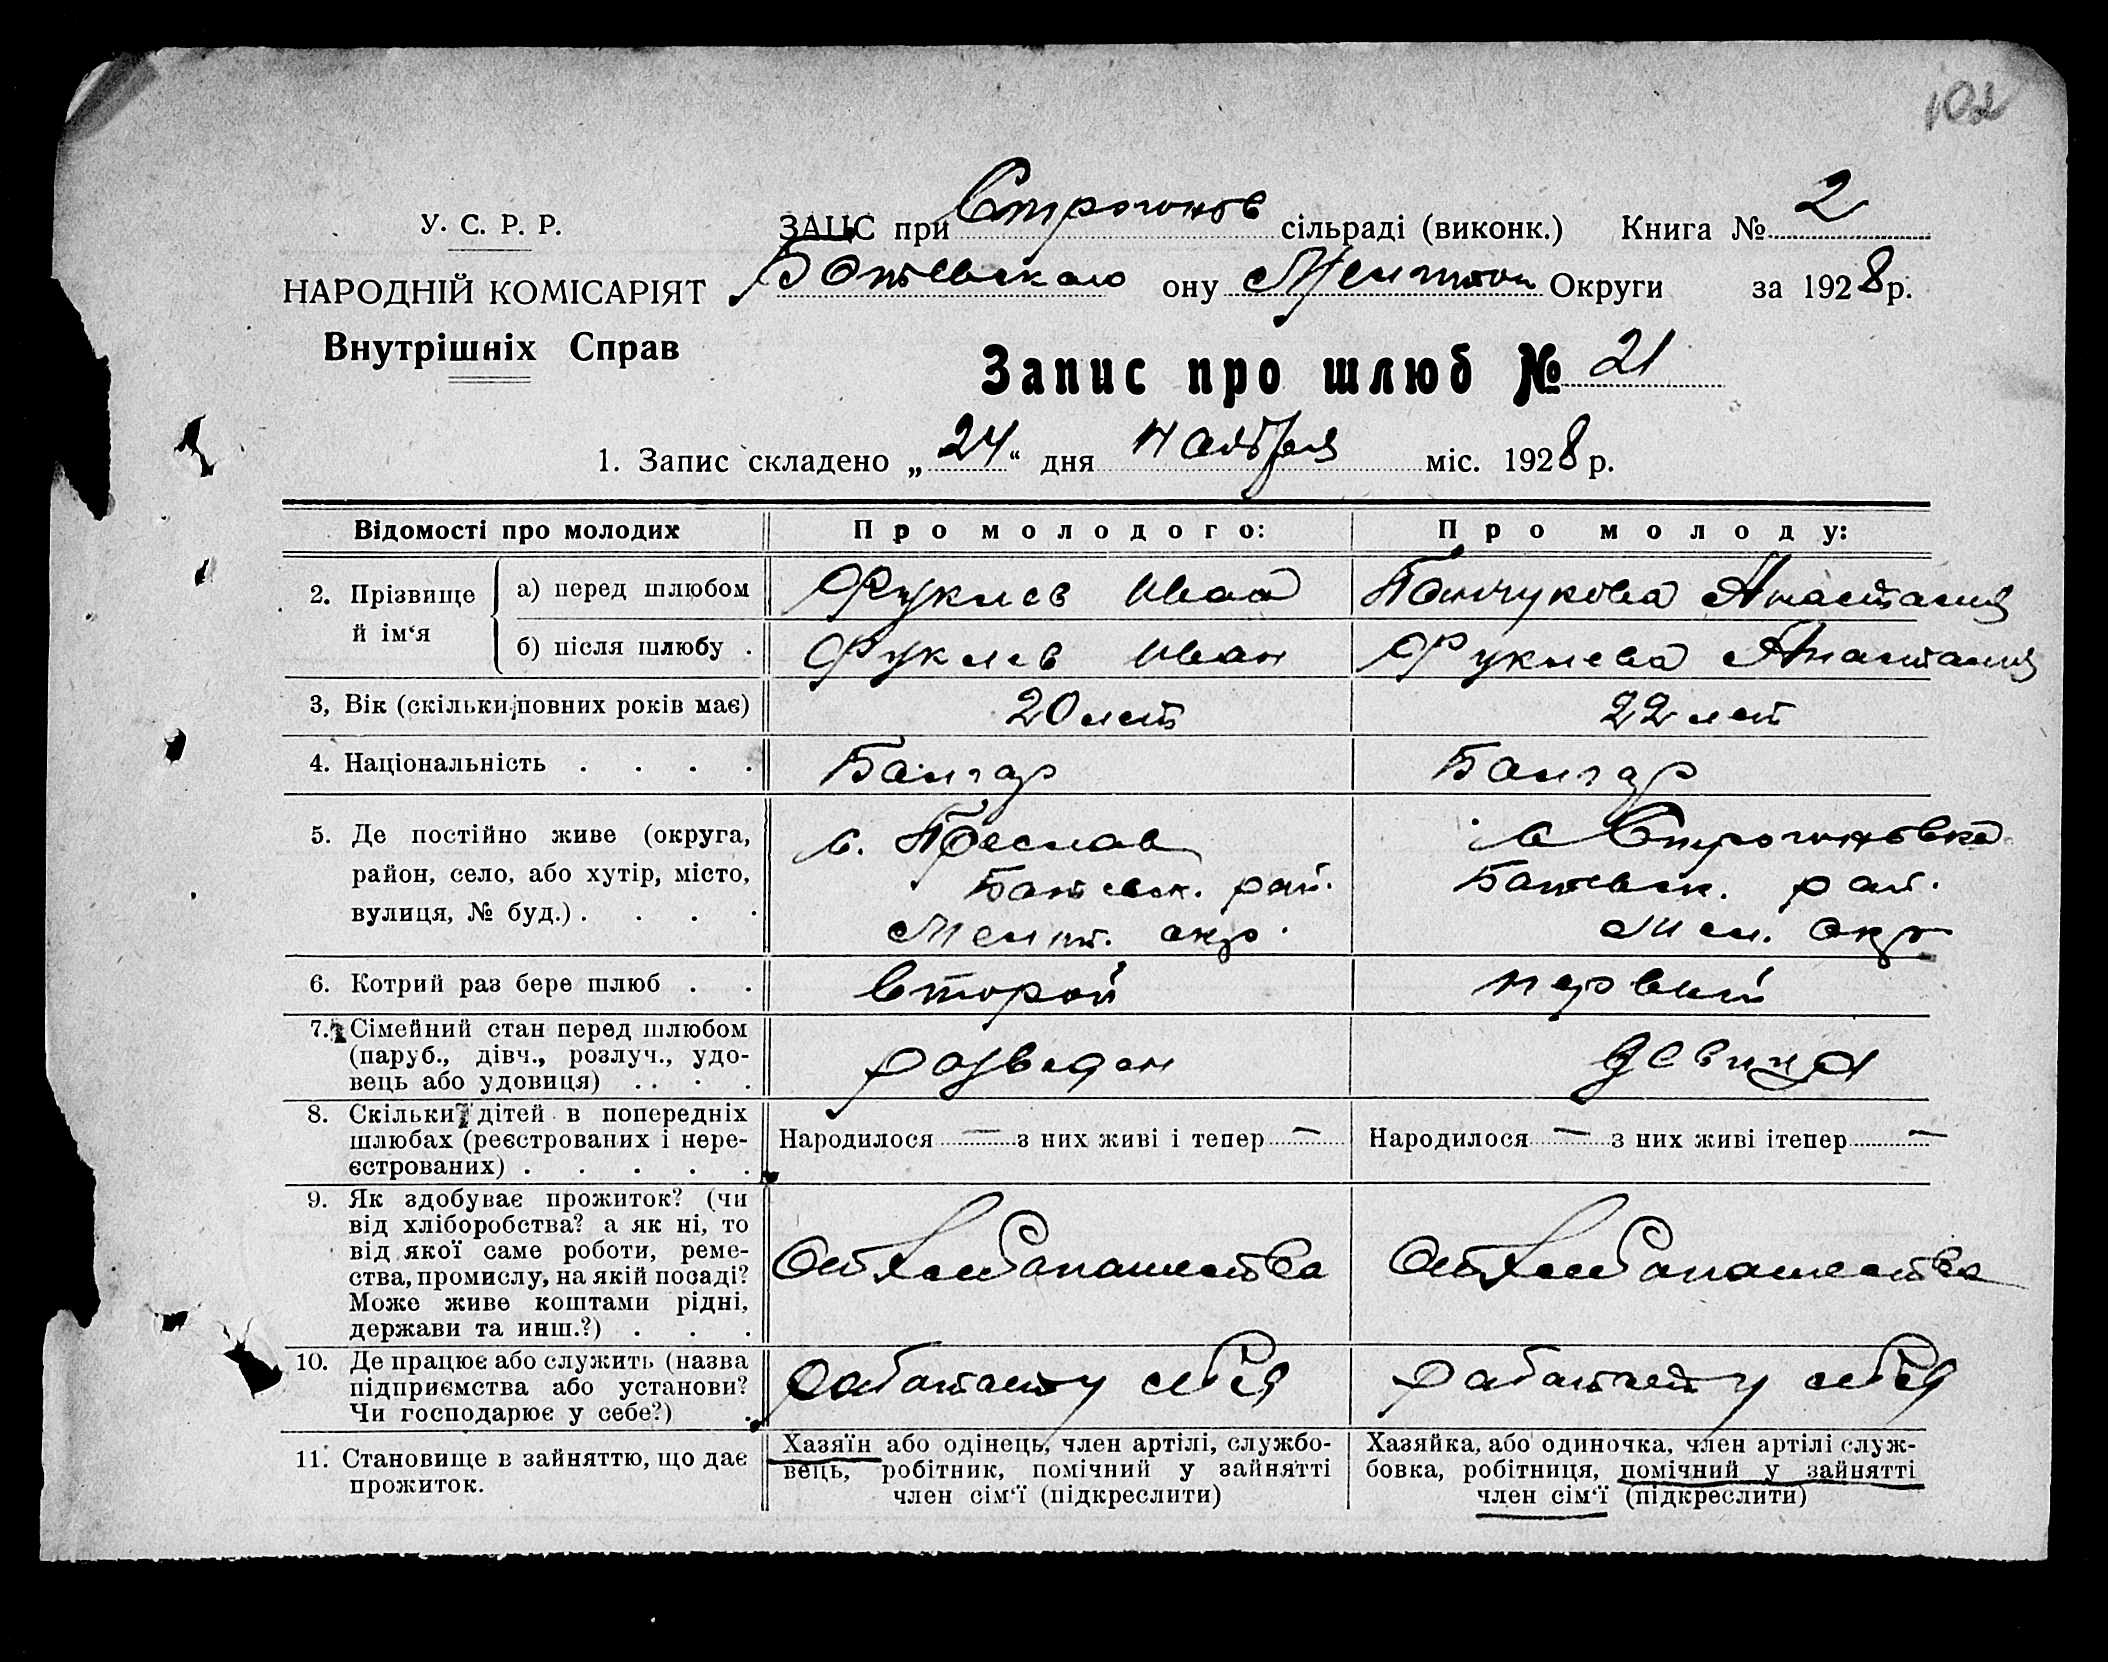 102
У. С. Р. Р.
НАРОДНІЙ КОМІСАРІЯТ
Внутрішніх Справ
ЗАЦС при Строгонов сільраді (виконк.) Книга № 2
Ботевского ону Мелитоп Округи за 1928 р.
Запис про шлюб № 21
1. Запис складено „24“ дня ноября міс. 1928 р.
Відомості про молодих Про молодого: Про молоду:
2. Прізвище й ім‘я
а) перед шлюбом Фуклев Иван Анастасия
б) після шлюбу . Фуклев Иван Фуклева Анастасия
3, Вік (скільки повних років має) 20 лет 22 лет
4. Національність . . . . Болгар Болгар
5. Де постійно живе (округа,
район, село, або хутір, місто,
вулиця, № буд.) . . . .
с. Преслав
Ботевск. рай.
Мелит. окр.
с Строгоновка
Ботевск. рай.
Мел. окр
6. Котрий раз бере шлюб . . второй первий
7. Сімейний стан перед шлюбом
(паруб., дівч., розлуч., удо-
вець або удовиця) . . . .
разведен девица
8. Скільки дітей в попередніх
шлюбах (реєстрованих і нере-
єстрованих) . . . . .
Народилося — з них живі і тепер — Народилося — з них живі ітепер —
9. Як здобуває прожиток? (чи
від хліборобства? а як ні, то
від якої саме роботи, реме-
ства, промислу, на якій посаді?
Може живе коштами рідні,
держави та инш.?) . . .
От хлебопашества От хлебопашества
10. Де працює або служить (назва
підприємства або установи?
Чи господарює у себе?) .
работает у себя работает у себя
11. Становище в зайняттю, що дає
прожиток.
Хазяїн або одінець, член артілі, службо-
вець, робітник, помічний у зайнятті
член сім‘ї (підкреслити)
Хазяйка, або одиночка, член артілі служ-
бовка, робітниця, помічний у зайнятті
член сім‘ї (підкреслити)